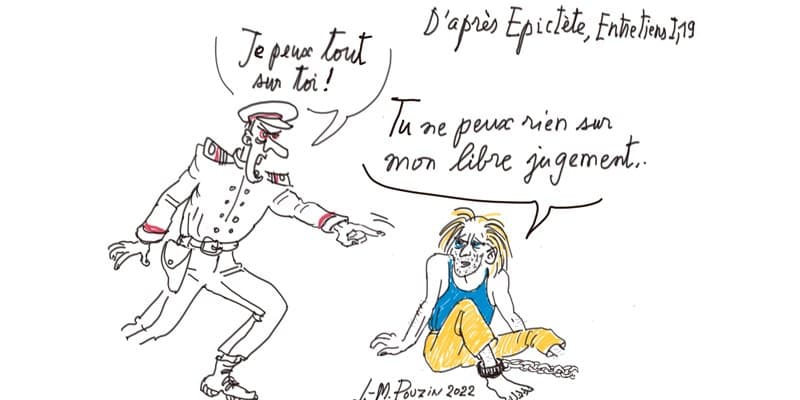 D'après Epictète, Entretiens I,19
Je peux tout
sur toi !
Tu ne peux rien sur
mon libre jugement..
J.-M. Pouzin 2022